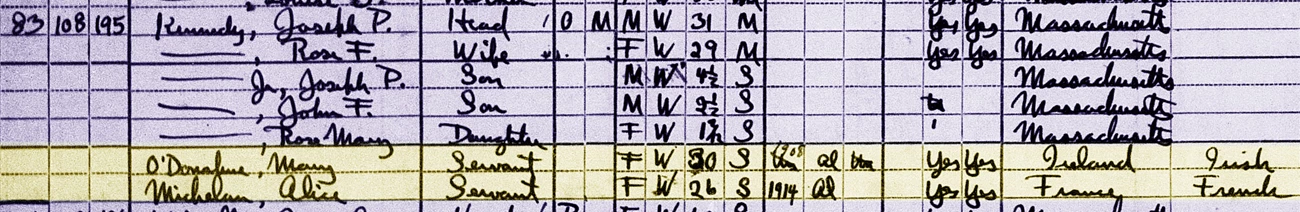 83 108 195 Kennedy, Joseph P. Head 1 O M M W 31 M Yes Yes Massachusetts
——, Rose F. Wife F W 29 M Yes Yes Massachusetts
—— Jr, Joseph P. Son M W 4½ S Massachusetts
——, John F. Son M W 2½ S Massachusetts
——, Rose Mary Daughter F W 1 S Massachusetts
O'Donahue, Mary Servant F W 30 S 1908 Al Yes Yes Ireland Irish
Michelan, Alice Servant F W 26 S 1914 Al Yes Yes France French